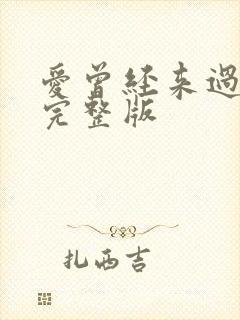 愛曾经来過
完整版
扎西吉